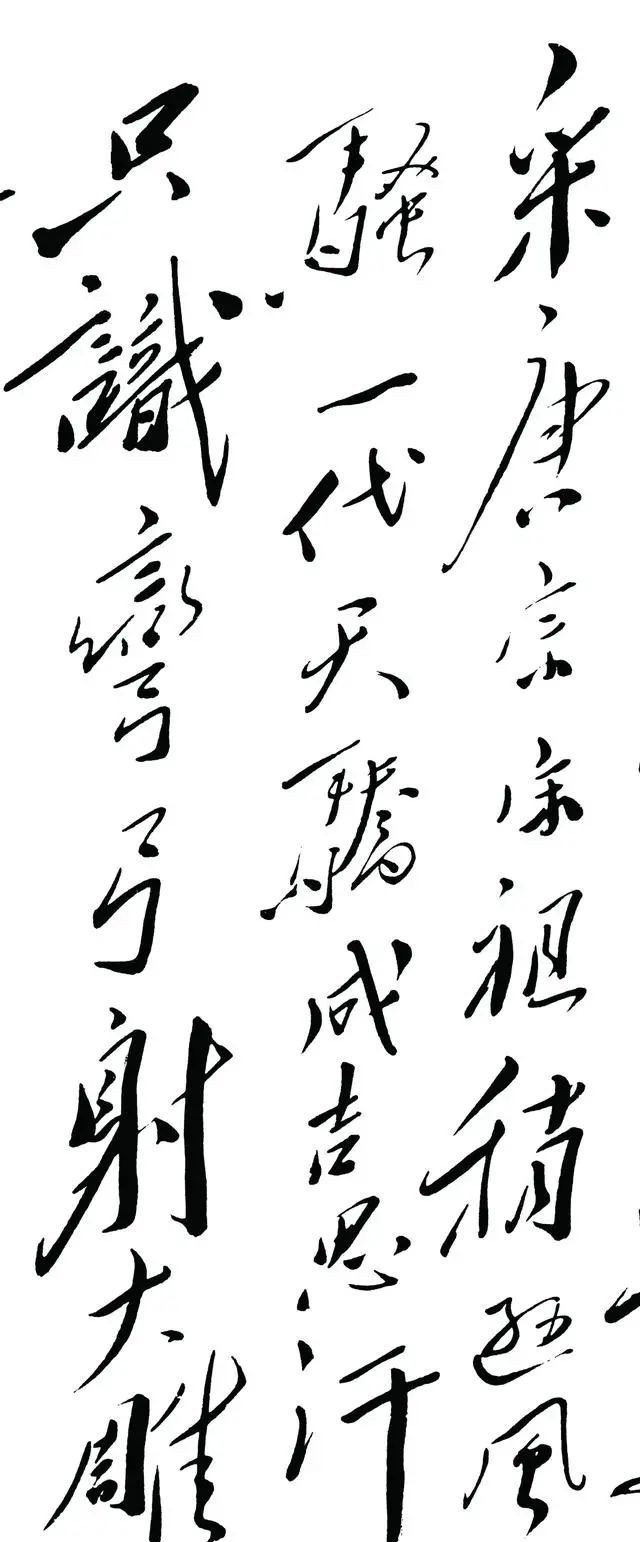 采唐宗宋祖稍遜風
騷一代天驕成吉思汗
只識彎弓射大雕